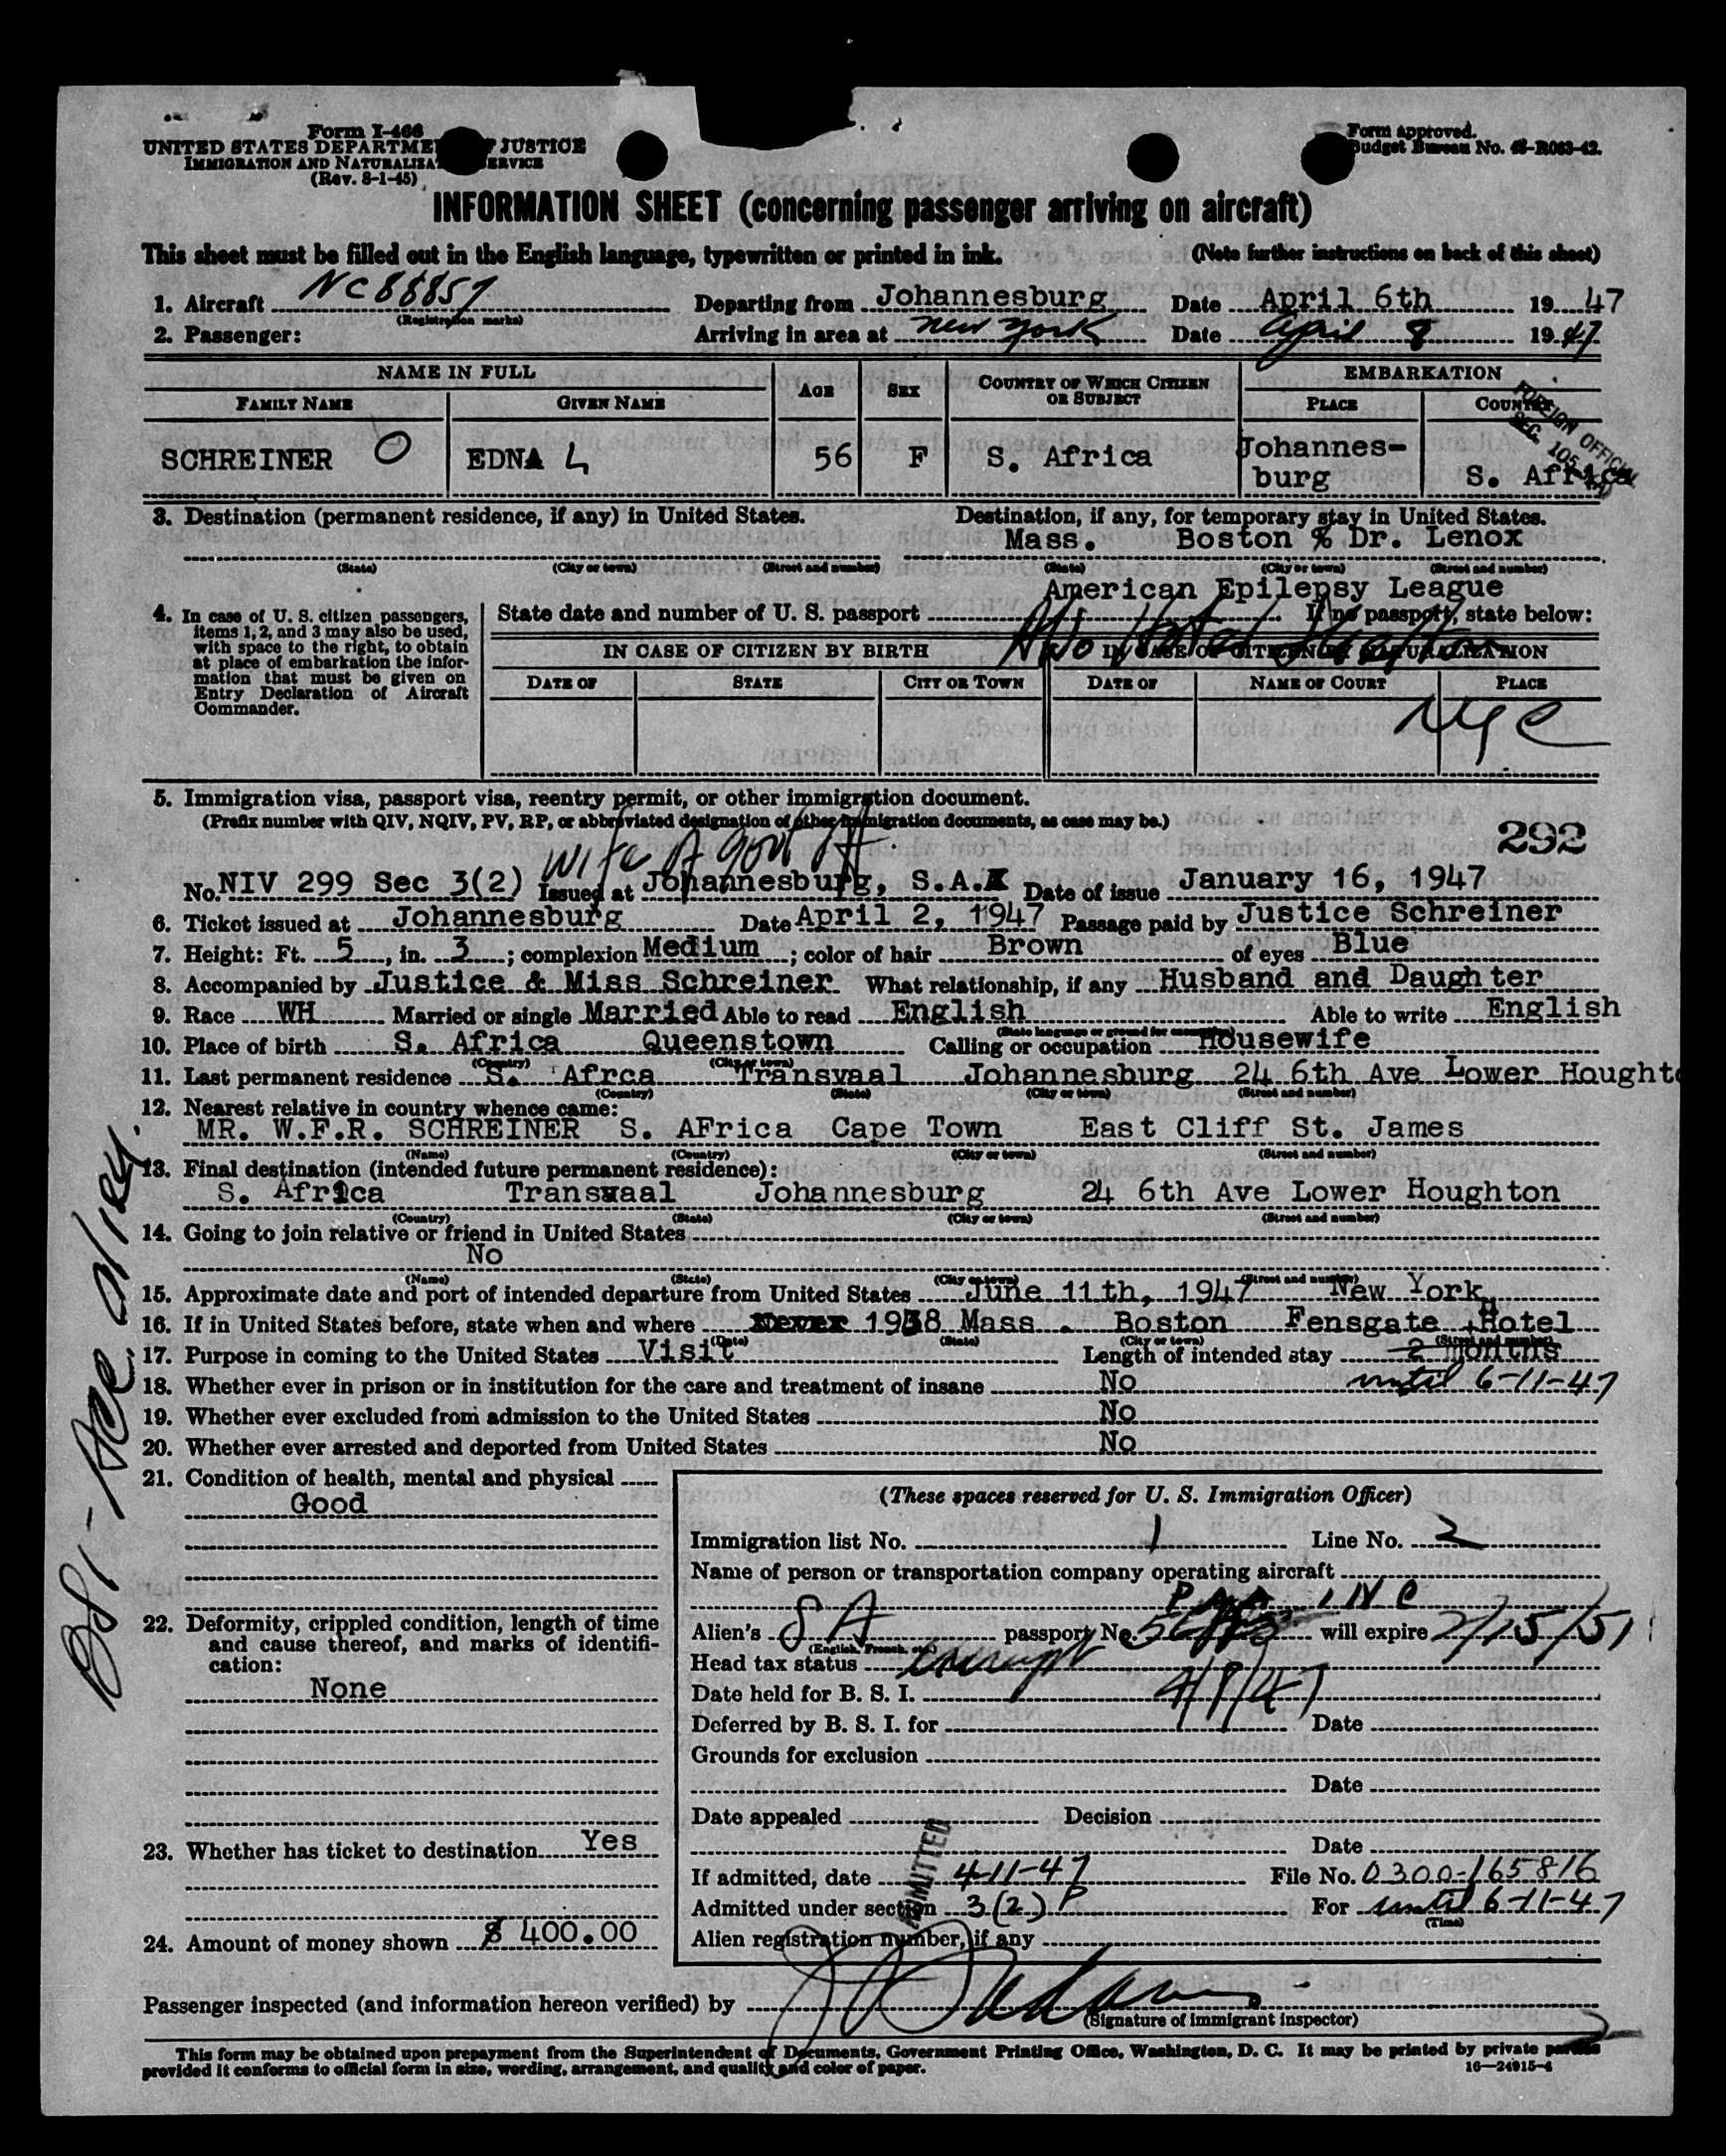 Form I-466
UNITED STATES DEPARTME JUSTICE
IMMIGRATION AND NATURALIZA ERVICE
(Rev. 8-1-45)
Form approved.
Budget Bureau No. 43-R063-42.
INFORMATION SHEET (concerning passenger arriving on aircraft)
This sheet must be filled out in the English language, typewritten or printed in ink. (Note further instructions on back of this sheet)
1. Aircraft NC88857 Departing from Johannesburg Date April 6th 19 47
(Registration marks)
2. Passenger: Arriving in area at New York Date April 8 19 47
NAME IN FULL AGE SEX COUNTRY OF WHICH CITIZEN OR SUBJECT EMBARKATION
FAMILY NAME GIVEN NAME PLACE COUNTRY
FOREIGN OFFICIAL
SEC. 105.3
SCHREINER O EDNA L 56 F S. Africa Johannes-
burg S. Africa
3. Destination (permanent residence, if any) in United States. Destination, if any, for temporary stay in United States.
Mass. Boston % Dr. Lenox
(State) (City or town) (Street and number) (State) (City or town) (Street and number)
American Epilepsy League
4. In case of U. S. citizen passengers, items 1, 2, and 3 may also be used, with space to the right, to obtain at place of embarkation the information that must be given on Entry Declaration of Aircraft Commander.
State date and number of U. S. passport If no passport, state below:
Hotel
IN CASE OF CITIZEN BY BIRTH IN CASE OF CITIZEN BY NATURALIZATION
DATE OF STATE CITY OR TOWN DATE OF NAME OF COURT PLACE
NYC
5. Immigration visa, passport visa, reentry permit, or other immigration document.
(Prefix number with QIV, NQIV, PV, RP, or abbreviated designation of other immigration documents, as case may be.)
292
wife of govt off.
No. NIV 299 Sec 3(2) Issued at Johannesburg, S.A. Date of issue January 16, 1947
6. Ticket issued at Johannesburg Date April 2, 1947 Passage paid by Justice Schreiner
7. Height: Ft. 5, in. 3; complexion Medium; color of hair Brown of eyes Blue
8. Accompanied by Justice & Miss Schreiner What relationship, if any Husband and Daughter
9. Race WH Married or single Married Able to read English Able to write English
(State language or ground for exemption)
10. Place of birth S. Africa Queenstown Calling or occupation Housewife
(Country) (City or town)
11. Last permanent residence S. Afrca Transvaal Johannesburg 24 6th Ave Lower Hought
(Country) (State) (City or town) (Street and number)
12. Nearest relative in country whence came:
MR. W.F.R. SCHREINER S. AFrica Cape Town East Cliff St. James
(Name) (Country) (City or town) (Street and number)
13. Final destination (intended future permanent residence):
S. Africa Transvaal Johannesburg 24 6th Ave Lower Houghton
(Country) (State) (City or town) (Street and number)
14. Going to join relative or friend in United States
No
(Name) (State) (City or town) (Street and number)
15. Approximate date and port of intended departure from United States June 11th, 1947 New York
16. If in United States before, state when and where 1938 Mass. Boston Fensgate Hotel
(Date) (State) (City or town) (Street and number)
17. Purpose in coming to the United States Visit Length of intended stay 2 months
18. Whether ever in prison or in institution for the care and treatment of insane No until 6-11-47
19. Whether ever excluded from admission to the United States No
20. Whether ever arrested and deported from United States No
21. Condition of health, mental and physical
Good
22. Deformity, crippled condition, length of time and cause thereof, and marks of identification:
None
23. Whether has ticket to destination Yes
24. Amount of money shown $ 400.00
(These spaces reserved for U. S. Immigration Officer)
Immigration list No. 1 Line No. 2
Name of person or transportation company operating aircraft
PAA, INC
Alien's SA passport No. will expire 2/15/51
(English, French, etc.)
Head tax status Exempt
Date held for B. S. I. 4/8/47
Deferred by B. S. I. for Date
Grounds for exclusion
Date
Date appealed Decision
Date
ADMITTED
If admitted, date 4-11-47 File No. 0300-165816
Admitted under section 3(2) P For until 6-11-47
(Time)
Alien registration number, if any
Passenger inspected (and information hereon verified) by
(Signature of immigrant inspector)
This form may be obtained upon prepayment from the Superintendent of Documents, Government Printing Office, Washington, D. C. It may be printed by private parties
provided it conforms to official form in size, wording, arrangement, and quality and color of paper. 16—24915-4